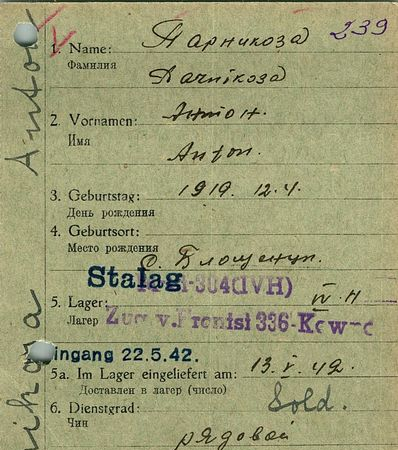 239
1. Name: Парникоза
Фамилия
Parnikoza
2. Vornamen: Антон.
Имя
Anton.
3. Geburtstag: 1919. 12.4.
День рождения
4. Geburtsort:
Место рождения
с.
Stalag 304(IVH)
5. Lager: IV H
Лагер v. Frontst 336-
ingang 22.5.42.
5a. Im Lager eingeliefert am: 13. V. 42.
Доставлен в лагер (число)
6. Dienstgrad: Sold.
Чин
рядовой
Anton